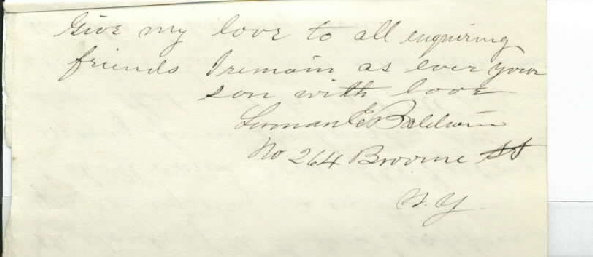 Give my love to all enquiring
friends I remain as ever your
son with love
Lyman E Baldwin
No 264 Broome St
N. Y.